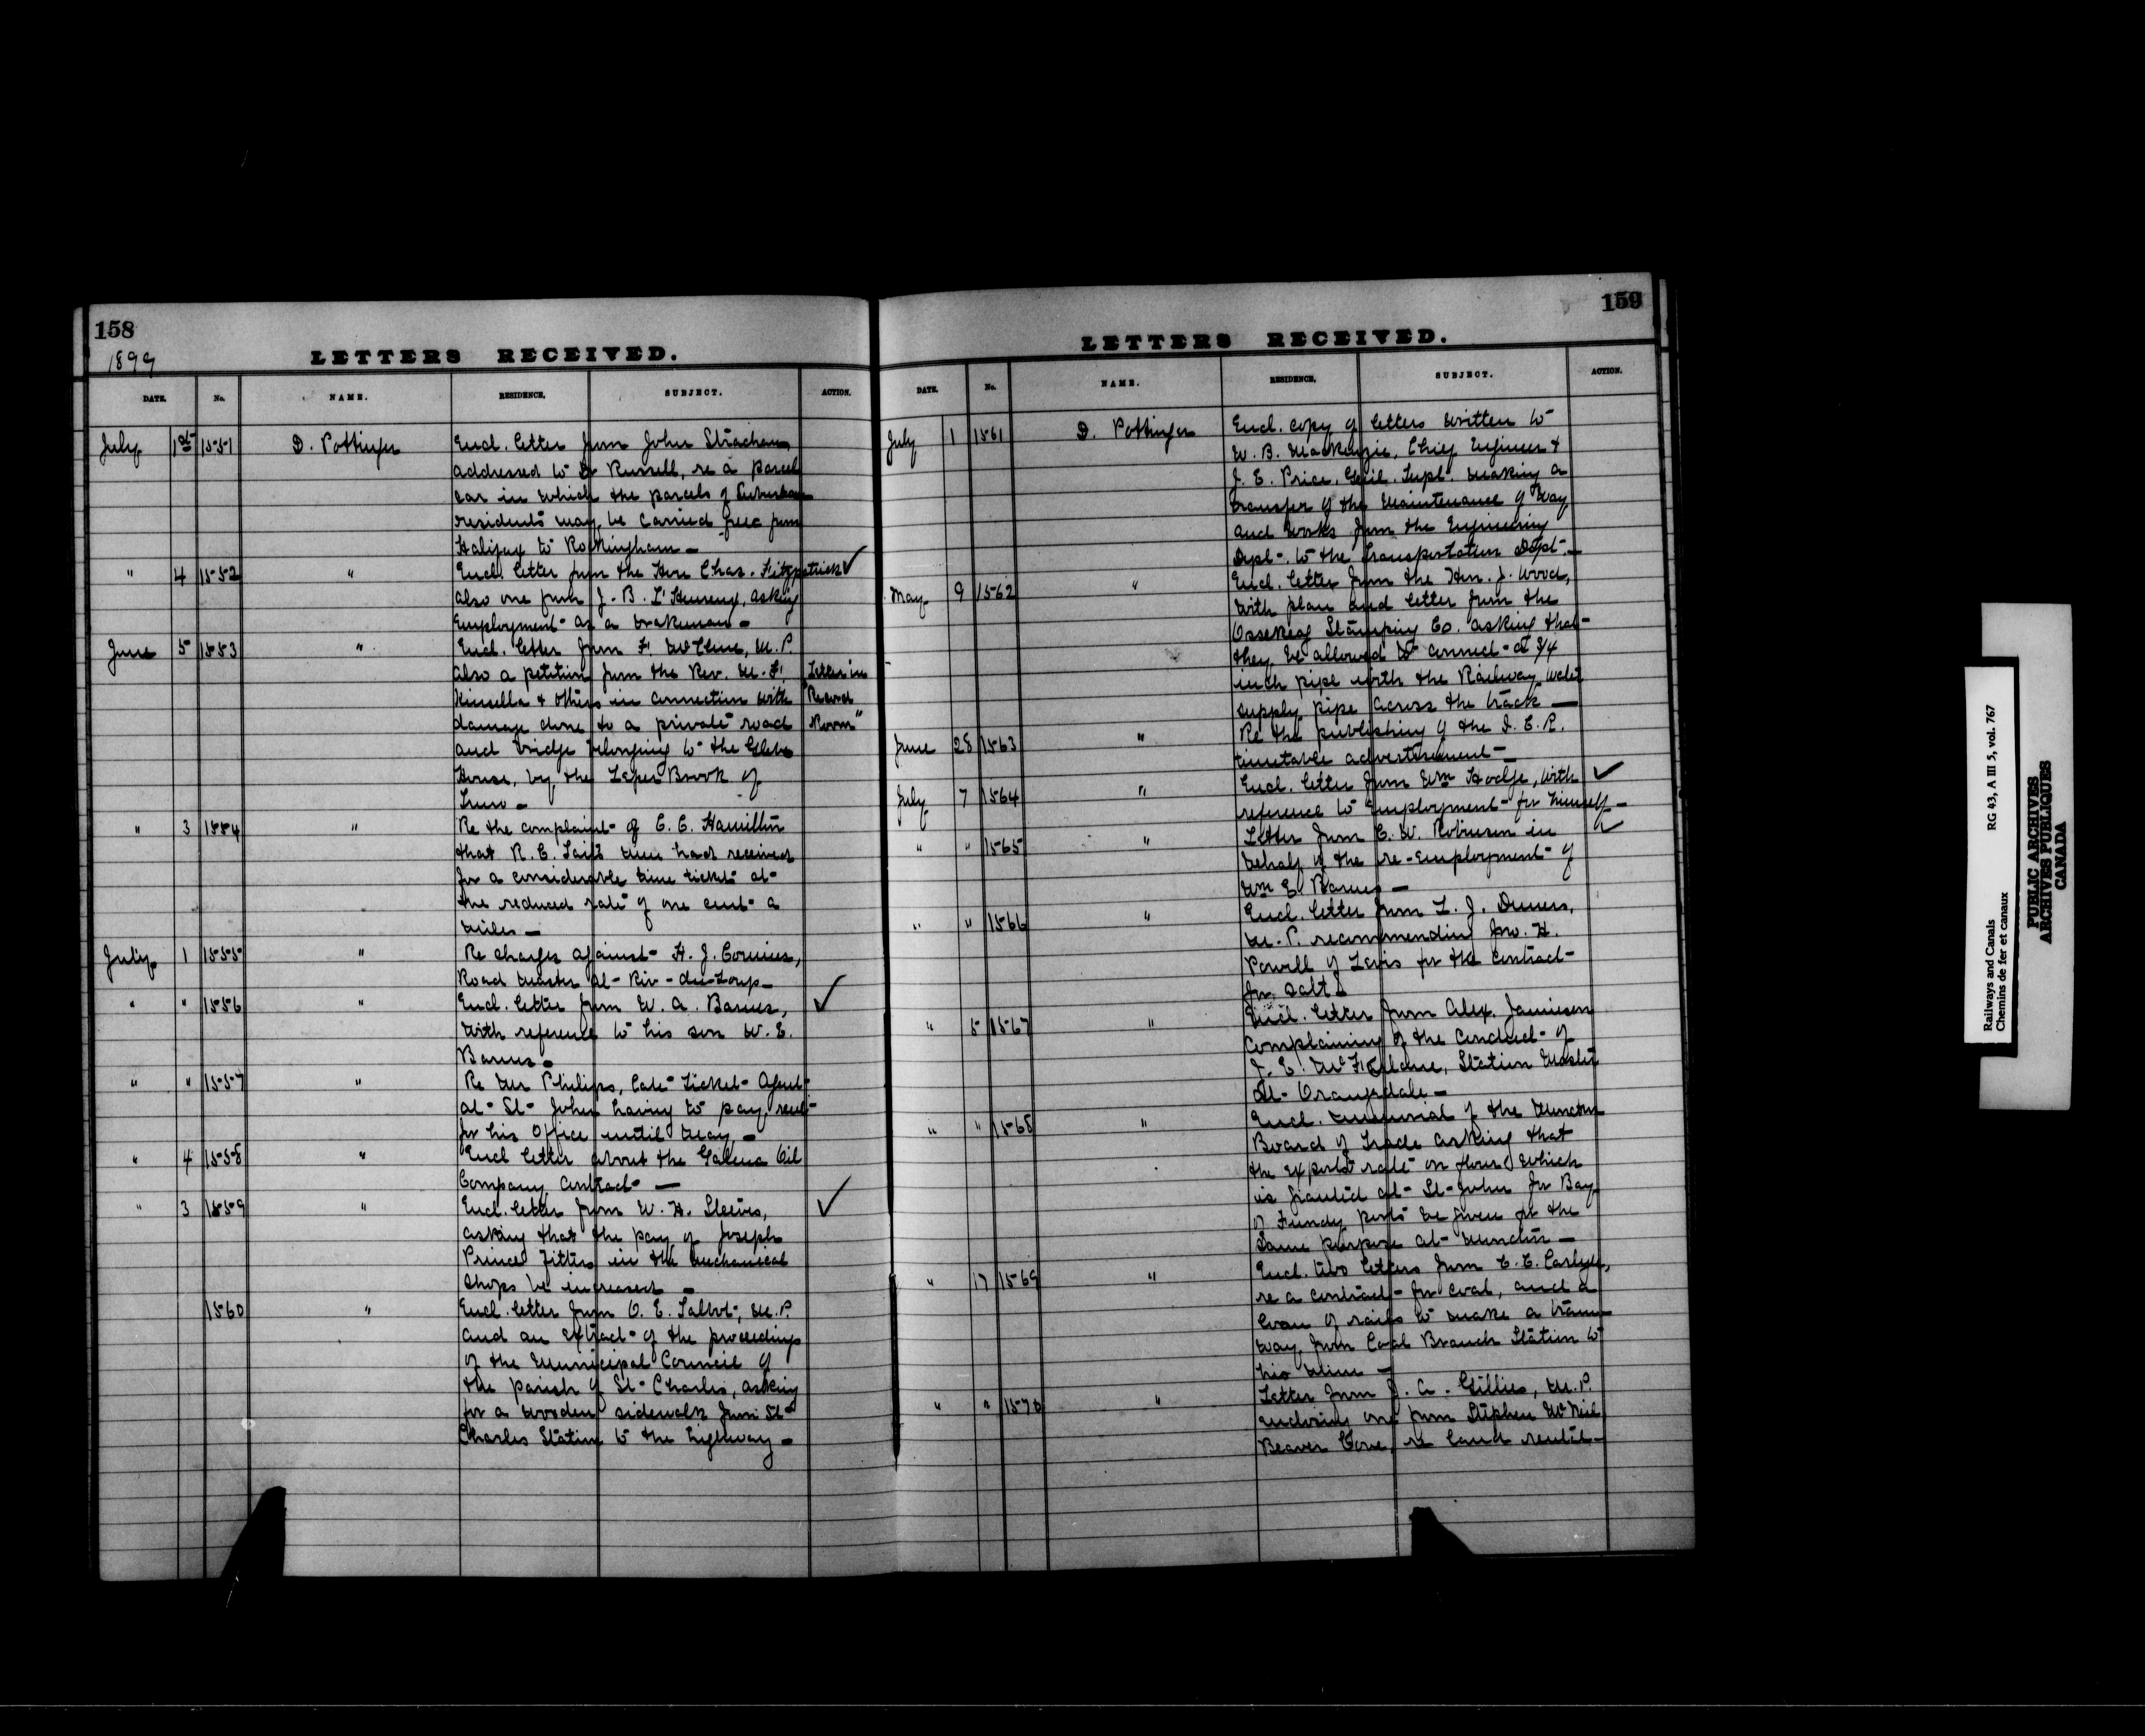 158
1899
LETTERS RECEIVED.
DATE. No. NAME. RESIDENCE. SUBJECT. ACTION.
July 1st 1551 D. Pottinger Encl. letter from John Strachan,
addressed to Dr Russell, re a parcel
car in which the parcels of Suburban
residents may be carried free from
Halifax to Rockingham -
" 4 1552 " Encl. letter from the Hon Chas. Fitzpatrick ✓
also one from J. B. L'Heureux, asking
Employment as a brakeman -
June 5 1553 " Encl. letter from F. McClure, M.P.
Also a petition from the Rev. M. F. "Letter in
Kinsella & others in connection with Record
damage done to a private road Room"
and bridge belonging to the Glebe
House, by the Lepers Brook of
Truro -
" 3 1554 " Re the complaint of C. E. Hamilton
that R. E. had received
for a considerable time tickets at
the reduced rate of one cent a
mile -
July 1 1555 " Re charges against H. J.
Road Master at Riv-du-Loup -
" " 1556 " Encl. letter from W. A. Barnes, ✓
with reference to his son W. E.
Barnes -
" " 1557 " Re Mr Philips, late Ticket Agent
at St John having to pay rent
for his Office until May -
" 4 1558 " Encl letter about the Galena Oil
Company Contract -
" 3 1559 " Encl. letter from W. H. Steeves, ✓
asking that the pay of Joseph
Prince fitters in the mechanical
shops be increased -
1560 " Encl. letter from O. E. Talbot, M.P.
and an extract of the proceedings
of the Municipal Council of
the parish of St Charles, asking
for a wooden sidewalk from St
Charles Station to the highway -
159
LETTERS RECEIVED.
DATE. No. NAME. RESIDENCE. SUBJECT. ACTION.
July 1 1561 D. Pottinger Encl. copy of letters written to
W. B. MacKenzie, Chief Engineer &
J. E. Price, Genl. Supt. making a
transfer of the Maintenance of Way
and Works from the Engineering
Dept. to the Transportation Dept. -
May 9 1562 " Encl. letter from the Hon. J. Wood,
with plan and letter from the
Stamping Co. asking that
they be allowed to connect a 3/4
inch pipe with the Railway water
supply pipe across the track -
June 28 1563 " Re the publishing of the I. C. R.
timetable advertisement -
July 7 1564 " Encl. letter from Wm Hodge, with ✓
reference to Employment for himself -
" " 1565 " Letter from C. W. Robinson in ✓
behalf of the re-employment of
Wm E. Barnes -
" " 1566 " Encl. letter from L. J. Demers,
M.P. recommending Jno. H.
Powell of Levis for the contract
for Salt
" 5 1567 " Encl. letter from Alex. Jamieson
complaining of the conduct of
J. E. McFarlane, Station Master
at Orangedale -
" " 1568 " Encl. memorial of the Moncton
Board of Trade asking that
the export rate on flour which
is granted at St John for Bay
of Fundy ports be given for the
same purpose at Moncton -
" 17 1569 " Encl. two letters from C. E. Carlyle,
re a contract for coal, and a
loan of rails to make a tram-
way from Coal Branch Station to
his mine -
" " 1570 " Letter from J. A. Gillies, M.P.
enclosing one from Stephen McNeil
Beaver Cove, re land rental -
Railways and Canals RG 43, A III 5, vol. 767
Chemins de fer et canaux
PUBLIC ARCHIVES
ARCHIVES PUBLIQUES
CANADA